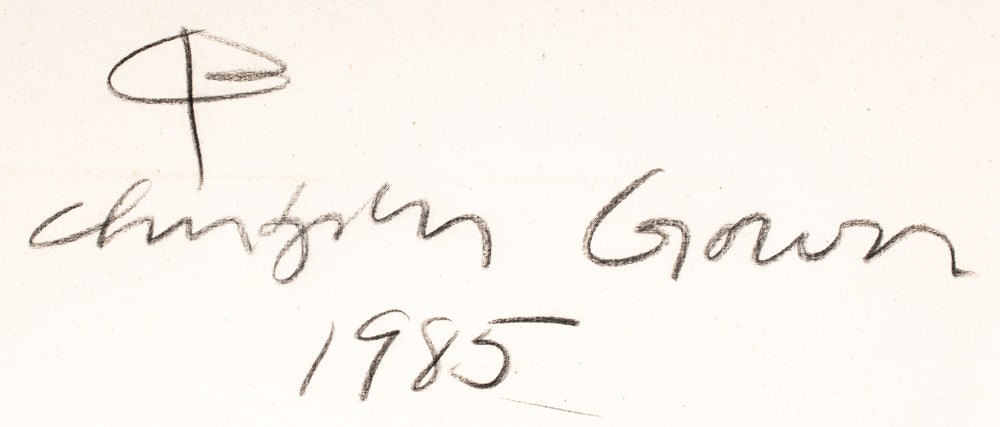 Christopher Crown
1985